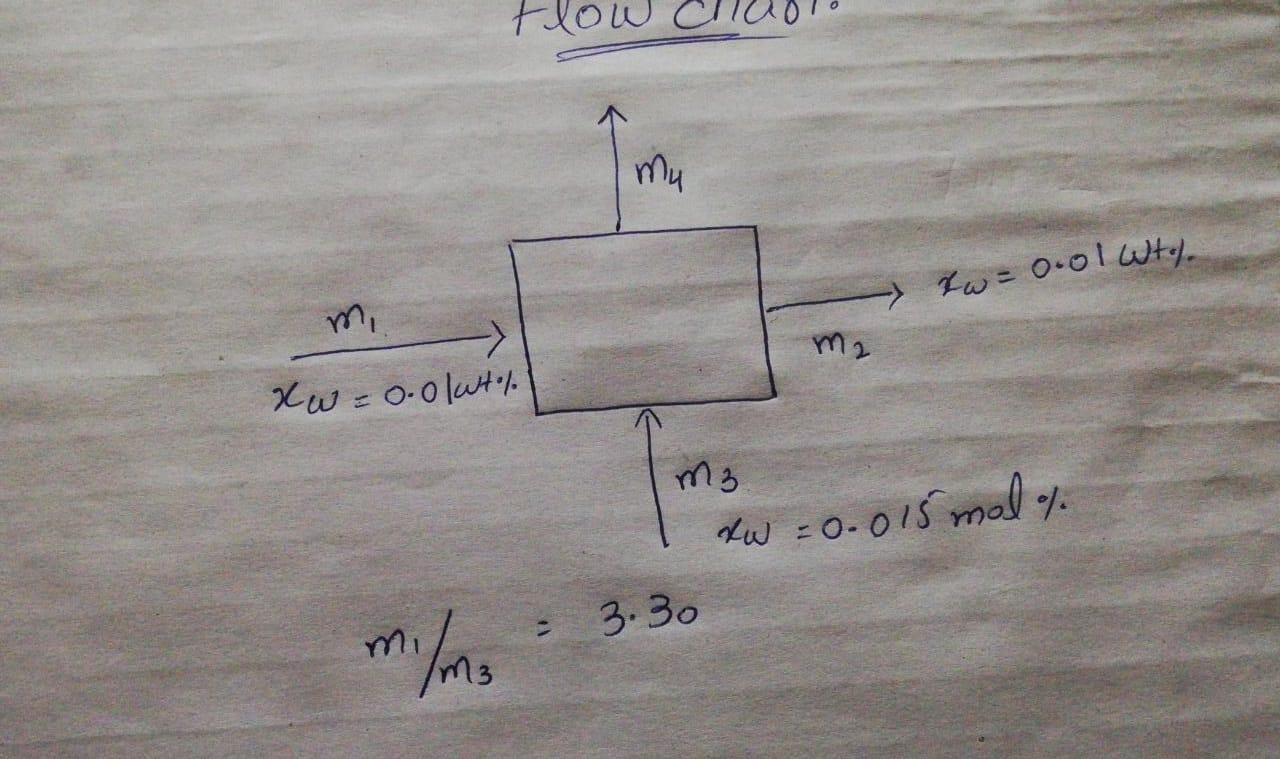 Flow
m4
m1
xw = 0.01 wt%
xw = 0.01 wt%
m2
m3
xw = 0.015 mol %
m1/m3 = 3.30